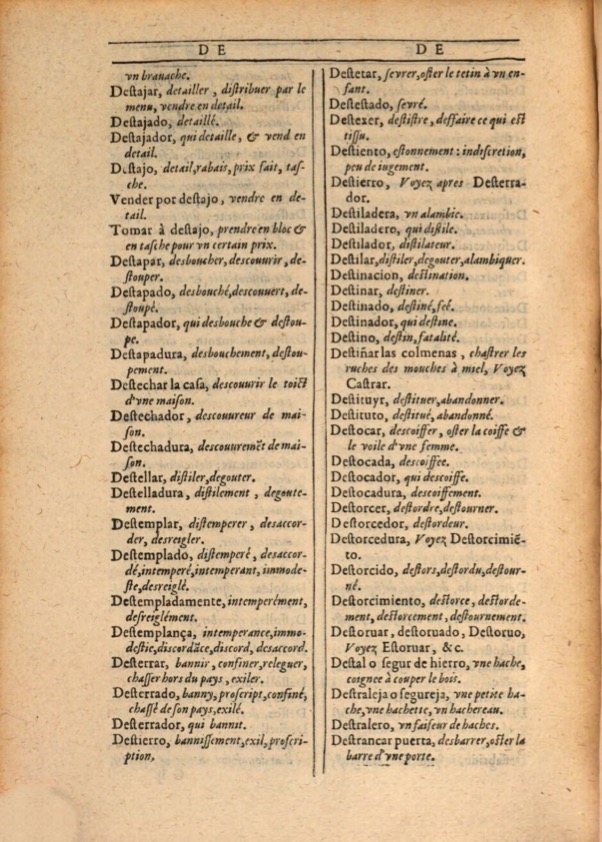 DE
vn brauache.
Destajar, detailler, distribuer par le
menu, vendre en detail.
Destajado, detaillé.
Destajador, qui detaille, & vend en
detail.
Destajo, detail, rabais, prix fait, tas-
che.
Vender por destajo, vendre en de-
tail.
Tomar à destajo, prendre en bloc &
en tasche pour vn certain prix.
Destapar, desboucher, descouurir, de-
stouper.
Destapado, desbouché, descouuert, de-
stoupé.
Destapador, qui desbouche & destou-
pe.
Destapadura, desbouchement, destou-
pement.
Destechar la casa, descouurir le toict
d'vne maison.
Destechador, descouureur de mai-
son.
Destechadura, descouuremēt de mai-
son.
Destellar, distiler, degouter.
Destelladura, distilement, degoute-
ment.
Destemplar, distemperer, desaccor-
der, desreigler.
Destemplado, distemperé, desaccor-
dé, intemperé, intemperant, immode-
ste, desreiglé.
Destempladamente, intemperément,
desreiglément.
Destemplança, intemperance, immo-
destie, discordāce, discord, desaccord.
Desterrar, bannir, confiner, releguer,
chasser hors du pays, exiler.
Desterrado, banny, proscript, confiné,
chassé de son pays, exilé.
Desterrador, qui bannit.
Destierro, bannissement, exil, proscri-
ption,
DE
Destetar, sevrer, oster le tetin à vn en-
fant.
Destestado, sevré.
Destexer, destistre, deffaire ce qui est
tissu.
Destiento, estonnement : indiscretion,
peu de iugement.
Destierro, Voyez apres Desterra-
dor.
Destiladera, vn alambic.
Destiladero, qui distile.
Destilador, distilateur.
Destilar, distiler, degouter, alambiquer.
Destinacion, destination.
Destinar, destiner.
Destinado, destiné, feé.
Destinador, qui destine.
Destino, destin, fatalité.
Destiñar las colmenas, chastrer les
ruches des mouches à miel, Voyez
Castrar.
Destituyr, destituer, abandonner.
Destituto, destitué, abandonné.
Destocar, descoiffer, oster la coiffe &
le voile d'vne femme.
Destocada, descoiffee.
Destocador, qui descoiffe.
Destocadura, descoiffement.
Destorcer, destordre, destourner.
Destorcedor, destordeur.
Destorcedura, Voyez Destorcimiē-
to.
Destorcido, destors, destordu, destour-
né.
Destorcimiento, destorce, destorde-
ment, destorcement, destournement.
Destoruar, destoruado, Destoruo,
Voyez Estoruar, &c.
Destal o segur de hierro, vne hache,
coignee à couper le bois.
Destraleja o segureja, vne petite ha-
che, vne hachette, vn hachereau.
Destralero, vn faiseur de haches.
Destrancar puerta, desbarrer, oster la
barre d'vne porte.